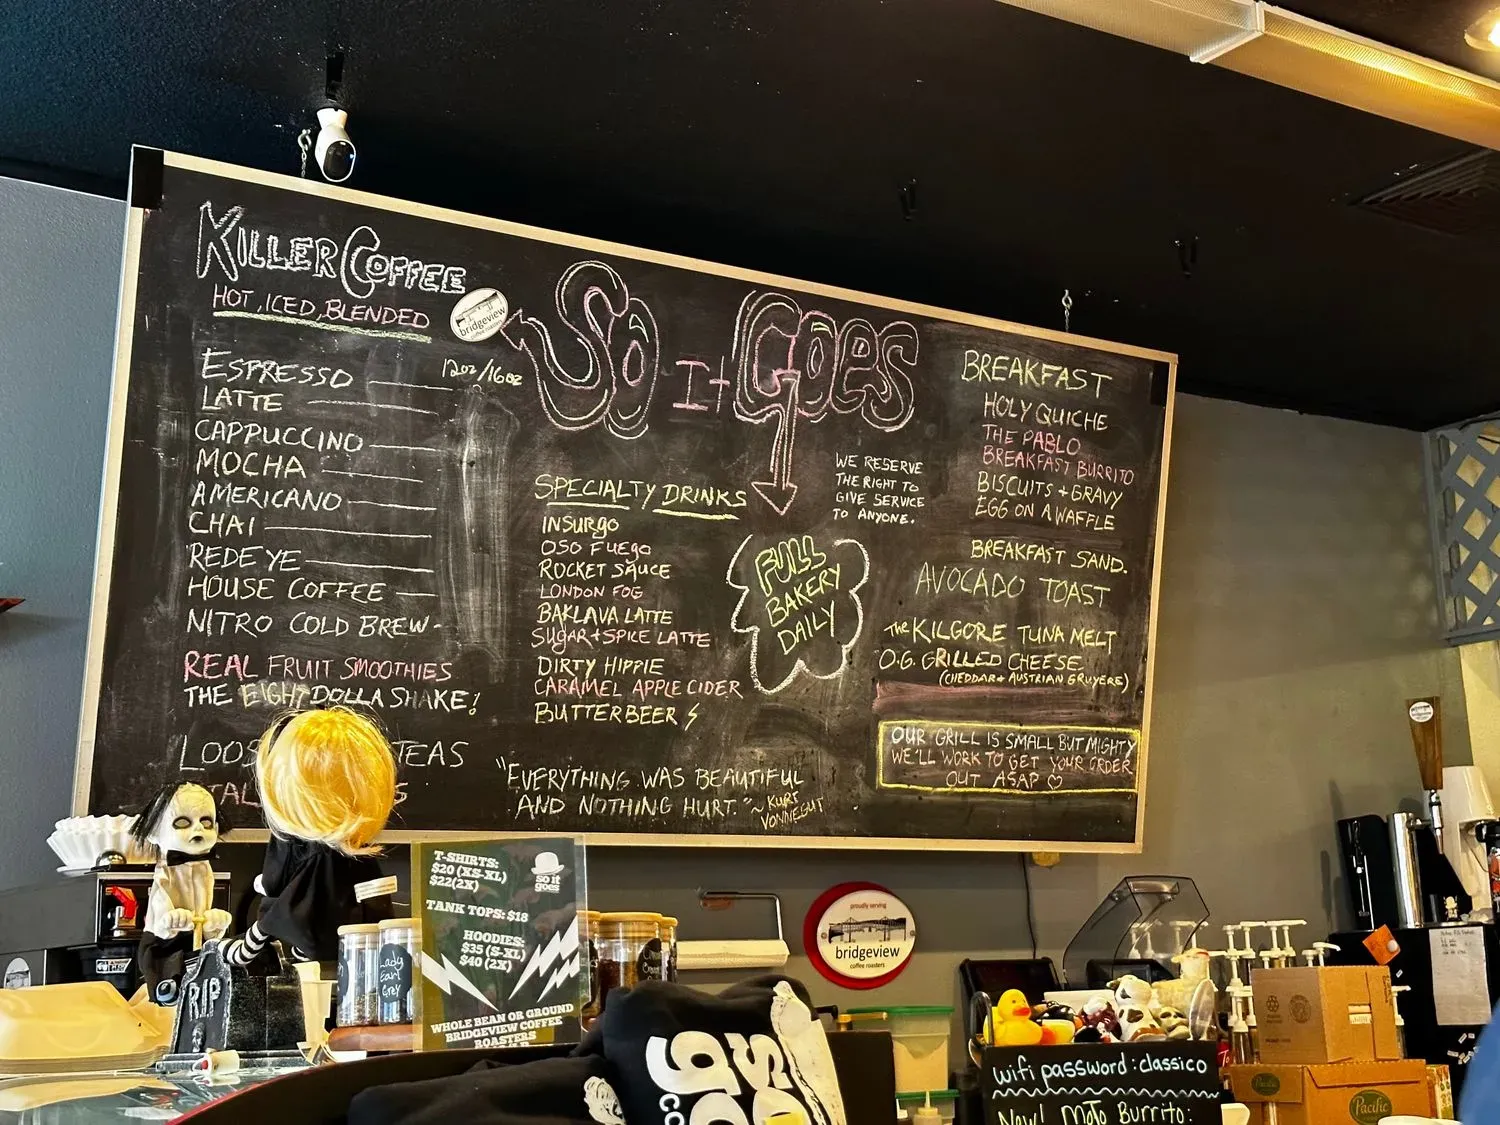 KILLER COFFEE
HOT, ICED, BLENDED
bridgeview
coffee roasters
12oz/16oz
ESPRESSO
LATTE
CAPPUCCINO
MOCHA
AMERICANO
CHAI
REDEYE
HOUSE COFFEE
NITRO COLD BREW
REAL FRUIT SMOOTHIES
THE EIGHT DOLLA SHAKE!
TEAS
SO It GOES
SPECIALTY DRINKS
INSURGO
OSO FUEGO
ROCKET SAUCE
LONDON FOG
BAKLAVA LATTE
SUGAR + SPICE LATTE
DIRTY HIPPIE
CARAMEL APPLE CIDER
BUTTERBEER
WE RESERVE
THE RIGHT TO
GIVE SERVICE
TO ANYONE.
FULL
BAKERY
DAILY
"EVERYTHING WAS BEAUTIFUL
AND NOTHING HURT." ~ KURT
VONNEGUT
BREAKFAST
HOLY QUICHE
THE PABLO
BREAKFAST BURRITO
BISCUITS + GRAVY
EGG ON A WAFFLE
BREAKFAST SAND.
AVOCADO TOAST
THE KILGORE TUNA MELT
O.G. GRILLED CHEESE
(CHEDDAR + AUSTRIAN GRUYERE)
OUR GRILL IS SMALL BUT MIGHTY
WE'LL WORK TO GET YOUR ORDER
OUT ASAP
T-SHIRTS:
$20 (XS-XL)
$22(2X)
so it
goes
TANK TOPS: $18
HOODIES:
$35 (S-XL)
$40 (2X)
WHOLE BEAN OR GROUND
BRIDGEVIEW COFFEE
ROASTERS
RIP
Lady
Earl
Grey
proudly serving
bridgeview
coffee roasters
so
go
wifi password: classico
New! Mojo Burrito:
Pacific
Pacific